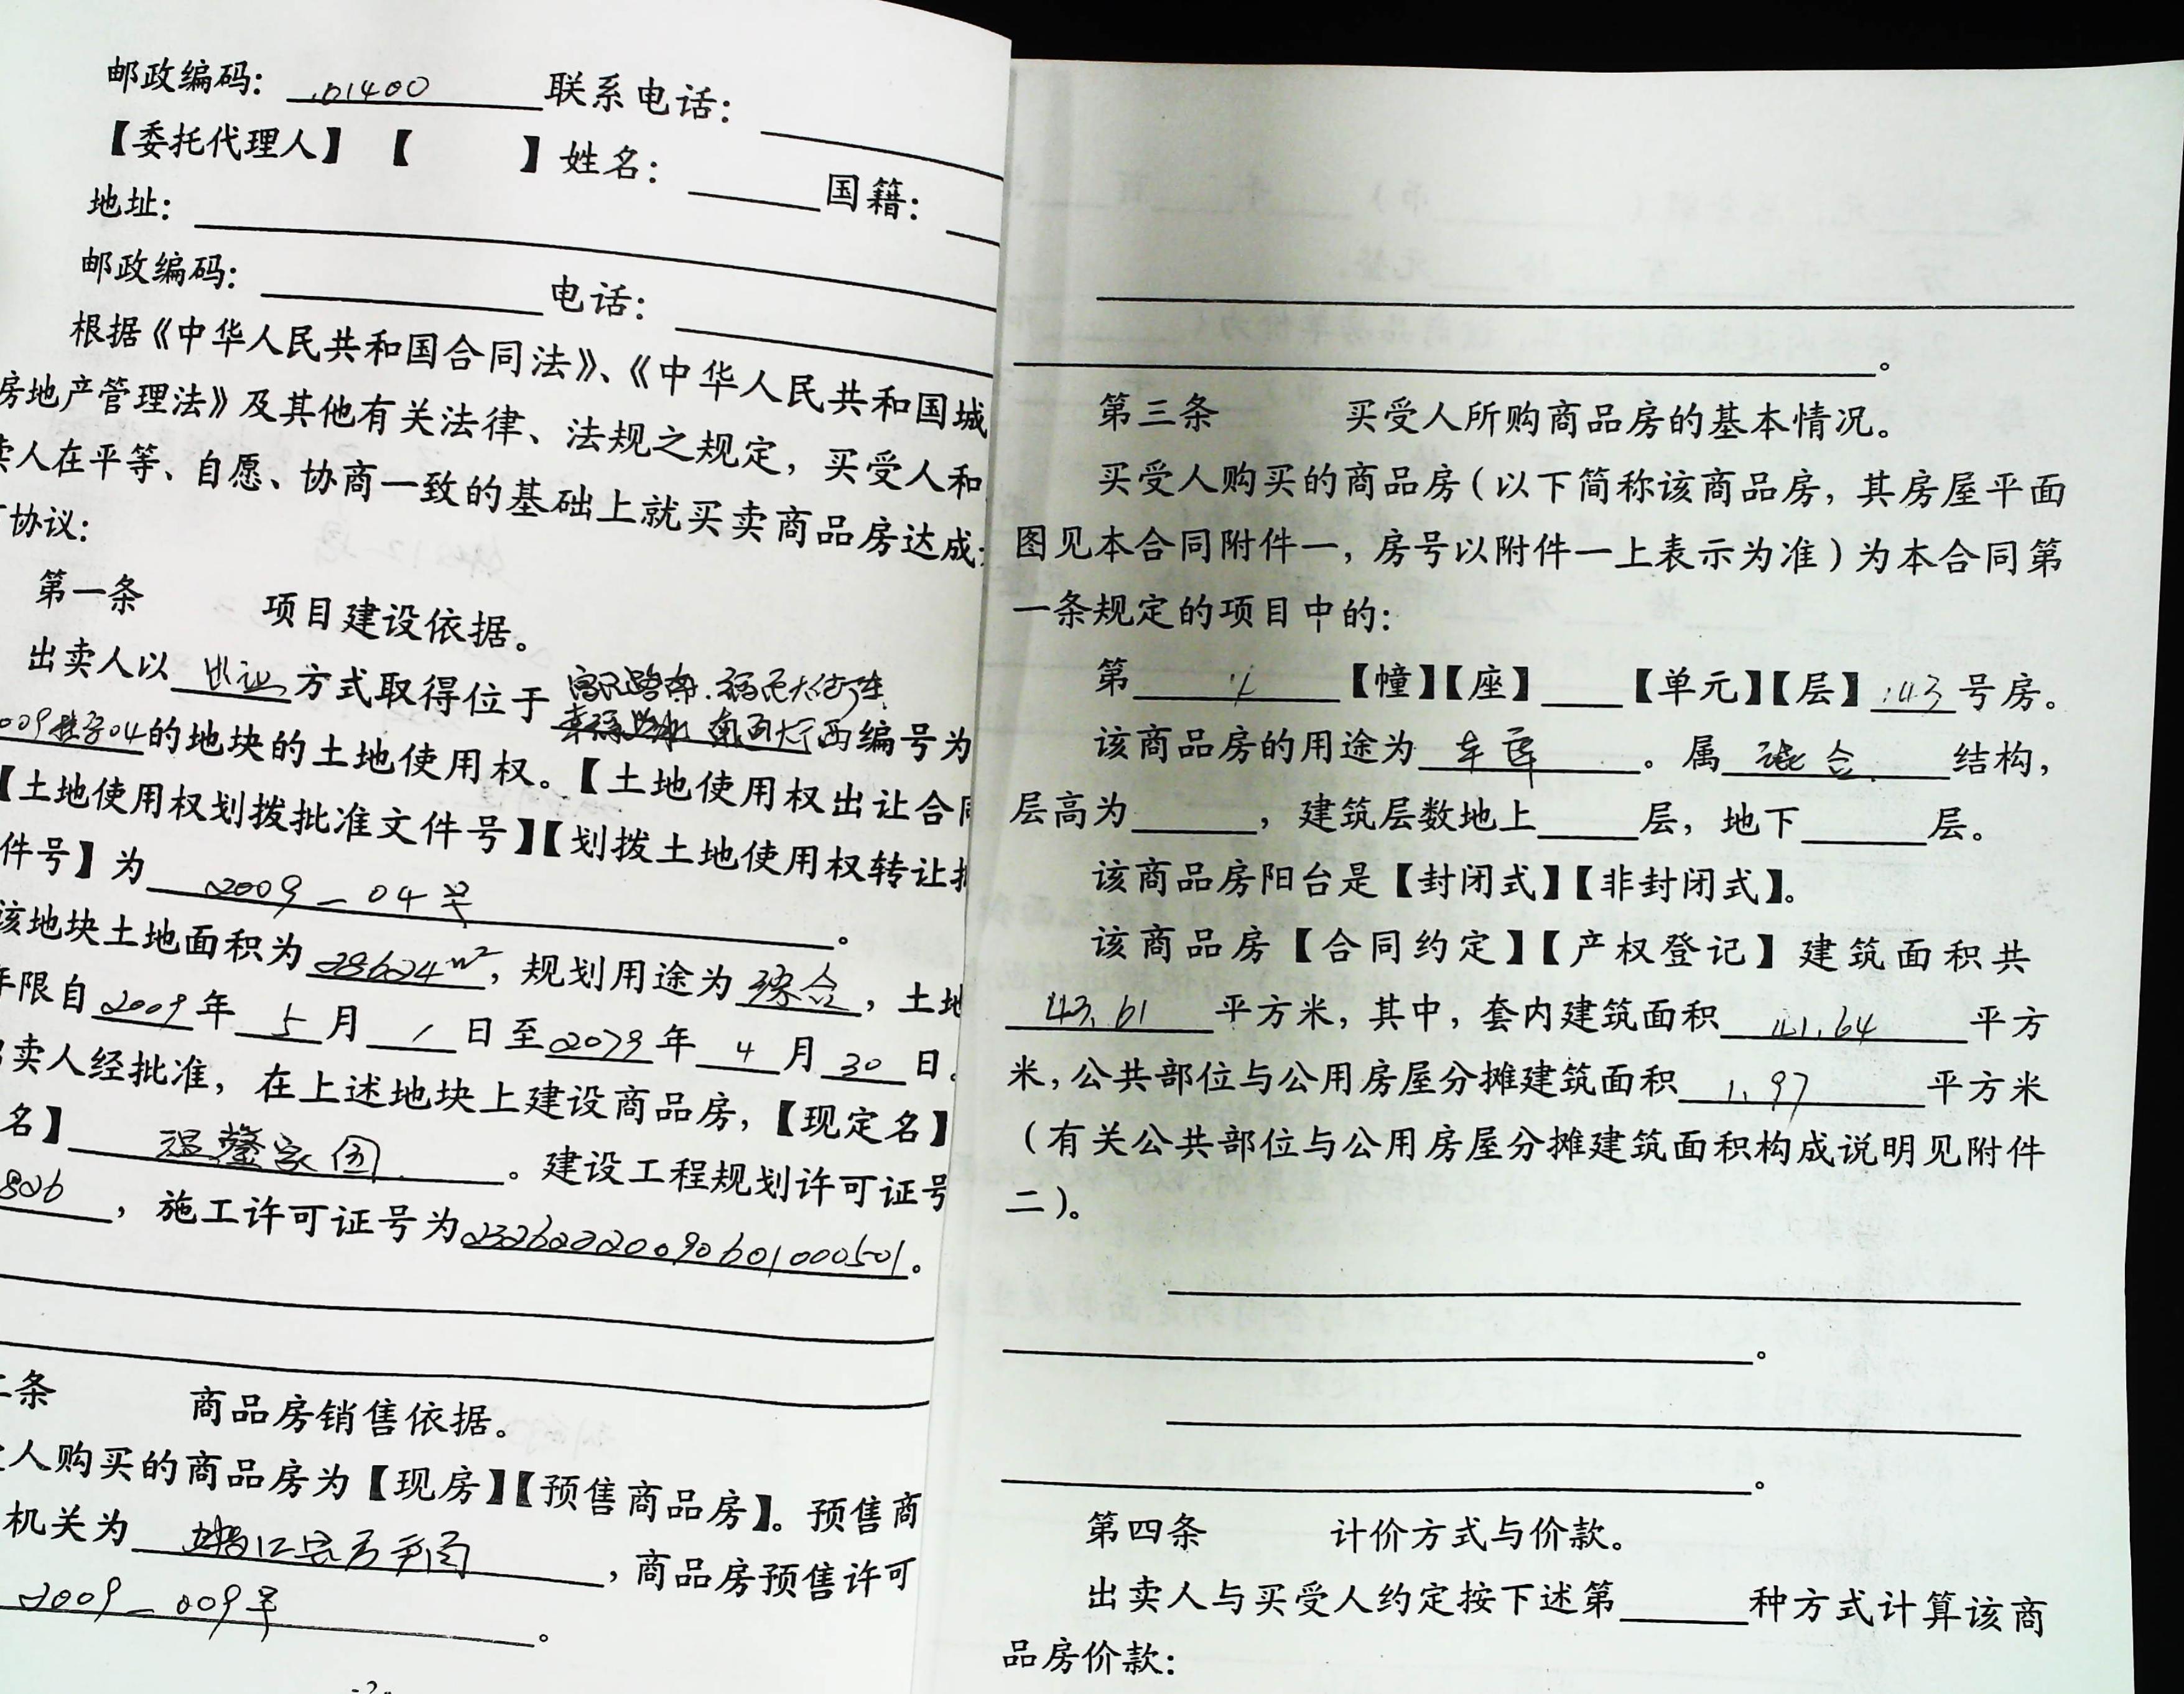 邮政编码: 联系电话:
【委托代理人】 【 】姓名: 国籍:
地址:
邮政编码: 电话:
根据《中华人民共和国合同法》、《中华人民共和国城
房地产管理法》及其他有关法律、法规之规定，买受人和
卖人在平等、自愿、协商一致的基础上就买卖商品房达成
协议:
第一条 项目建设依据。
出卖人以 方式取得位于
编号为
的地块的土地使用权。【土地使用权出让合同
【土地使用权划拨批准文件号】【划拨土地使用权转让批
件号】为 2009-04号。
该地块土地面积为28624m², 规划用途为综合, 土地
年限自2009年5月1日至2079年4月30日。
出卖人经批准, 在上述地块上建设商品房,【现定名】
名】温馨家园。建设工程规划许可证号
, 施工许可证号为23262220090601000501。
二条 商品房销售依据。
人购买的商品房为【现房】【预售商品房】。预售商
机关为 , 商品房预售许可
2009-009号。
-2-
第三条 买受人所购商品房的基本情况。
买受人购买的商品房(以下简称该商品房, 其房屋平面
图见本合同附件一, 房号以附件一上表示为准)为本合同第
一条规定的项目中的:
第 【幢】【座】 【单元】【层】 号房。
该商品房的用途为车库。属混合结构,
层高为 , 建筑层数地上 层, 地下 层。
该商品房阳台是【封闭式】【非封闭式】。
该商品房【合同约定】【产权登记】建筑面积共
43.61平方米, 其中, 套内建筑面积41.64平方
米, 公共部位与公用房屋分摊建筑面积1.97平方米
(有关公共部位与公用房屋分摊建筑面积构成说明见附件
二)。
第四条 计价方式与价款。
出卖人与买受人约定按下述第 种方式计算该商
品房价款: